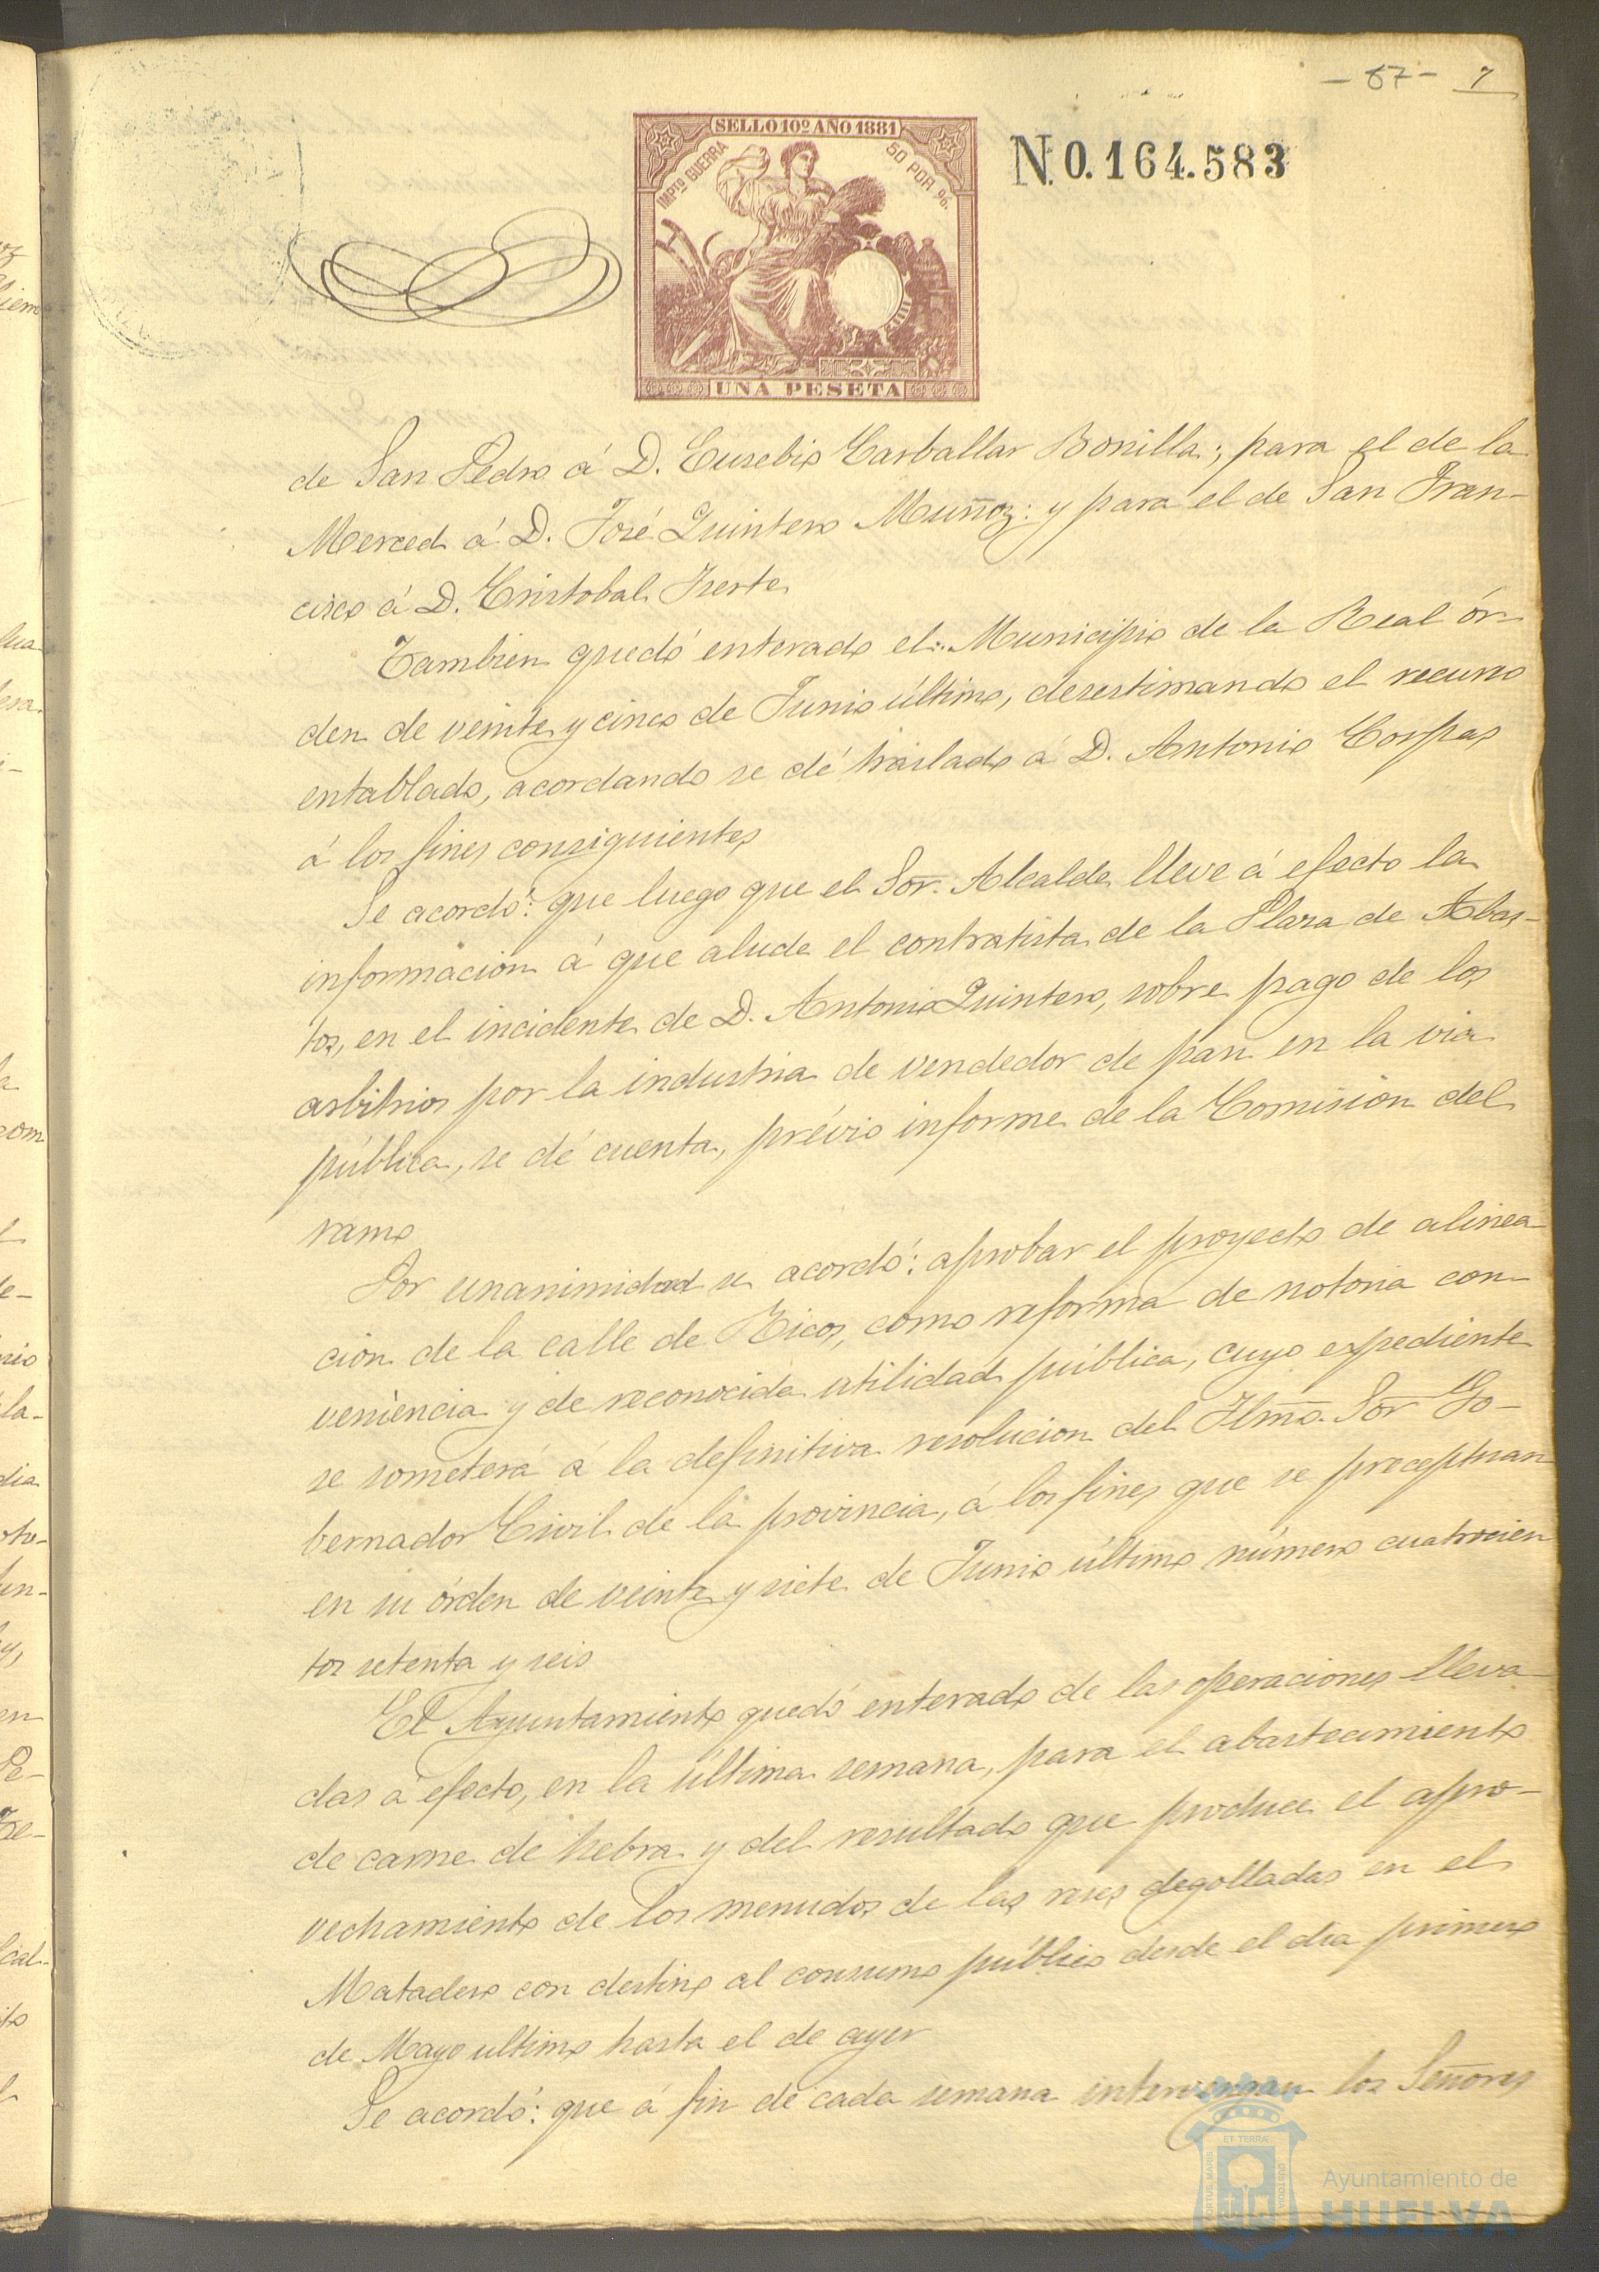 - 67 - 7
SELLO 10º AÑO 1881
IMPTO GUERRA
50 POR %.
UNA PESETA
N.0.164.583
de San Pedro á D. Eusebio Carballar Bonilla; para el de la
Merced á D. José Quintero Muñoz: y para el de San Fran-
cisco á D. Cristobal
Tambien quedó enterado el Municipio de la Real ór-
den de veinte y cinco de Junio último, desestimando el recurso
entablado, acordando se dé traslado á D. Antonio Corpas
á los fines consiguientes
Se acordó: que luego que el Sor. Alcalde lleve á efecto la
informacion á que alude el contratista de la Plaza de Abas-
tos, en el incidente de D. Antonio Quintero, sobre pago de los
arbitrios por la industria de vendedor de pan en la via
pública, se dé cuenta, prévio informe de la Comision del
ramo
Por unanimidad se acordó: aprobar el proyecto de alinea-
cion de la calle de Ricos, como reforma de notoria con-
veniencia y de reconocida utilidad pública, cuyo expediente
se someterá á la definitiva resolucion del Ilmo. Sor Go-
bernador Civil de la provincia, á los fines que se preceptuan
en su órden de veinte y siete de Junio último número cuatrocien
tos setenta y seis
El Ayuntamiento quedó enterado de las operaciones lleva-
das á efecto, en la última semana, para el abastecimiento
de carne de hebra y del resultado que produce el apro-
vechamiento de los menudos de las reses degolladas en el
Matadero con destino al consumo público desde el dia primero
de Mayo ultimo hasta el de ayer
Se acordó: que á fin de cada semana intervengan los Señores
PORTUS MARIS
ET TERRÆ
CUSTODIA
Ayuntamiento de
HUELVA